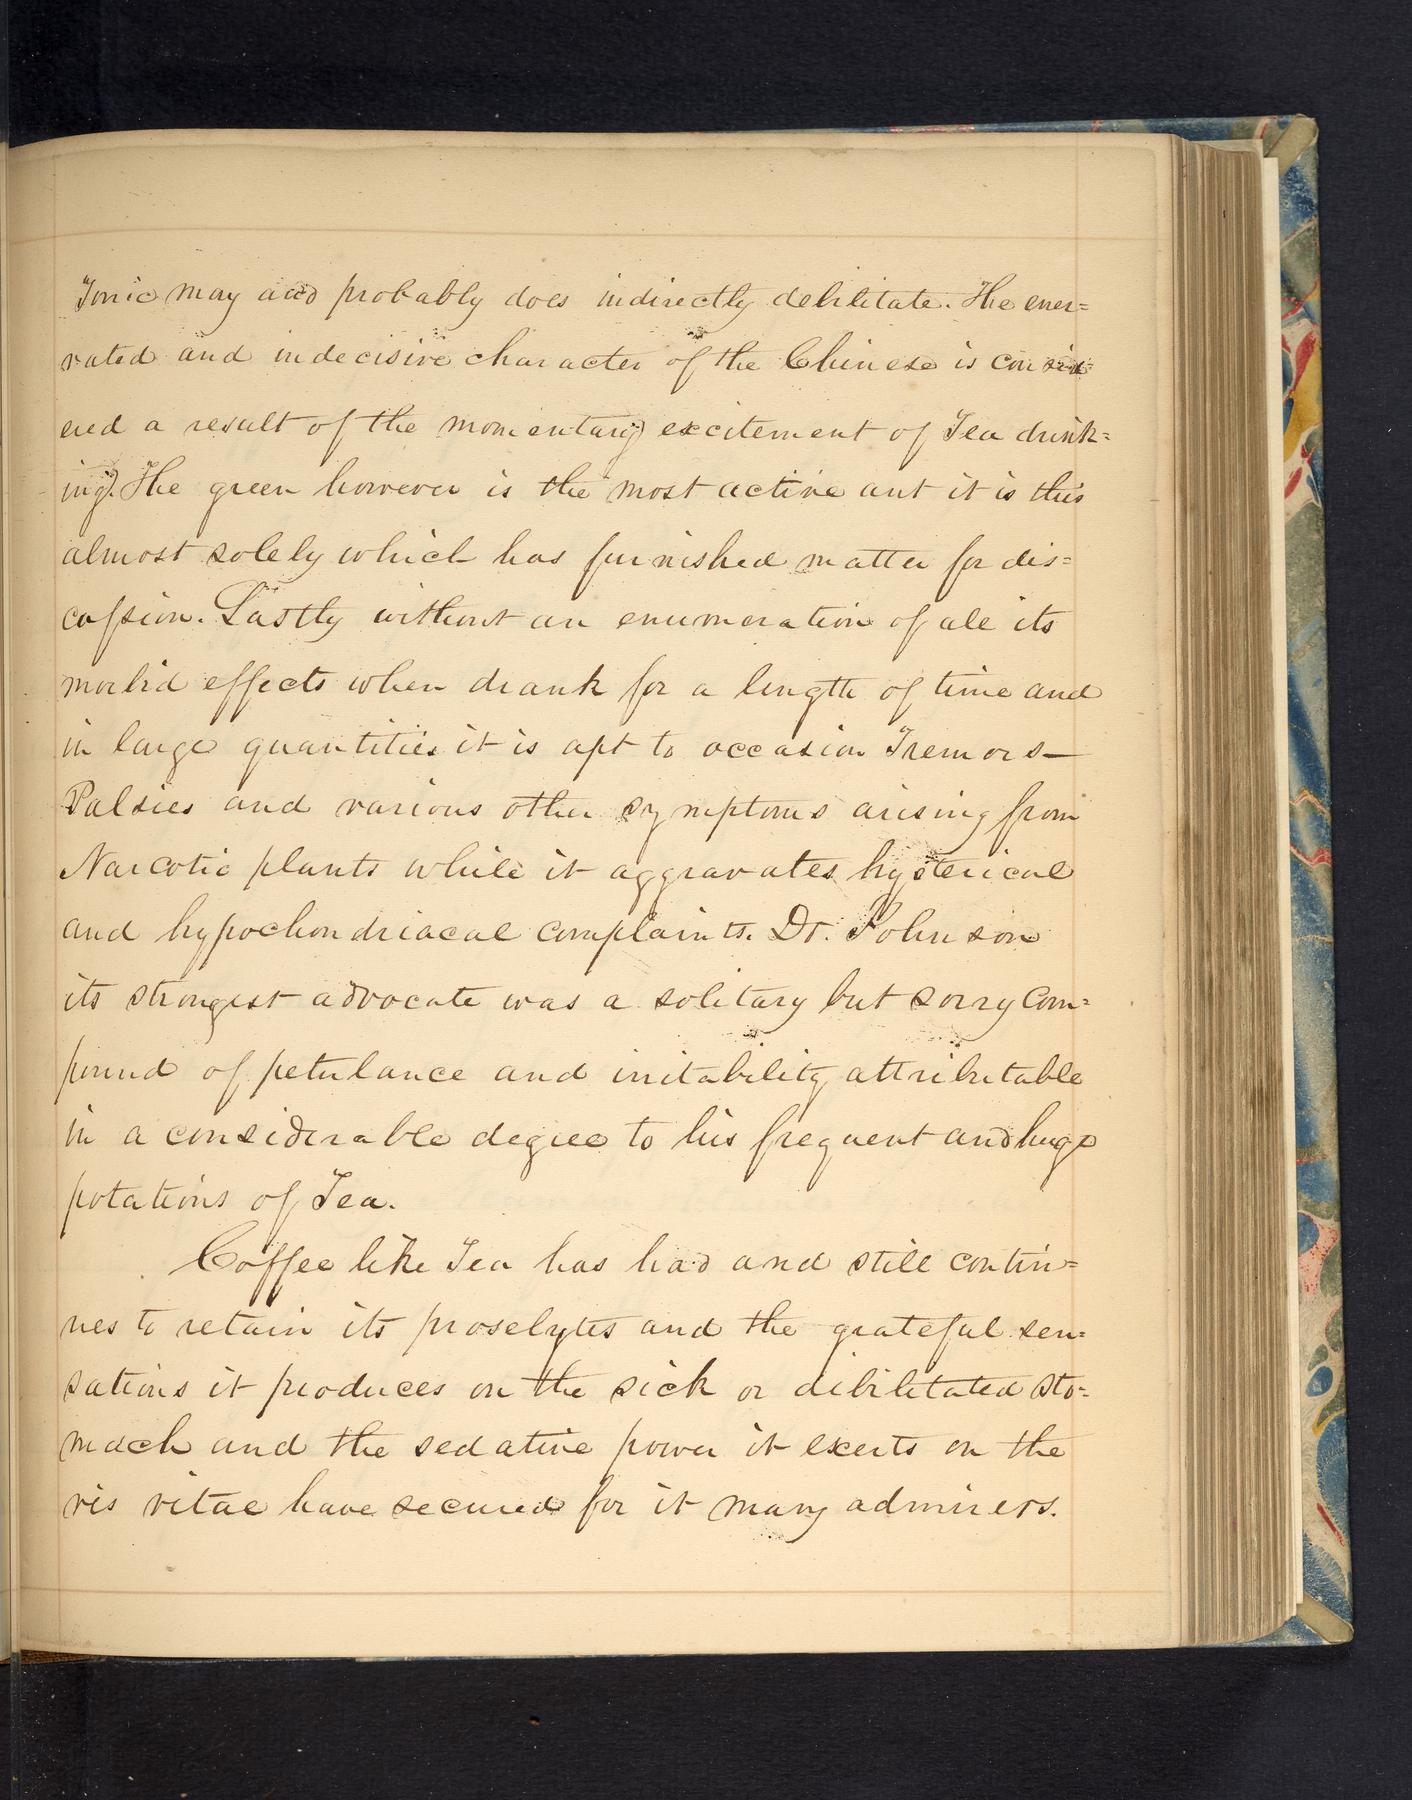 Tonic may and probably does indirectly debilitate. The ener=
vated and indecisive character of the Chinese is consid=
ered a result of the momentary excitement of Tea drink=
ing. The green however is the most active ant it is this
almost solely which has furnished matter for dis=
cussion. Lastly without an enumeration of all its
morbid effects when drank for a length of time and
in large quantities it is apt to occasion Tremors—
Palsies and various other symptoms arising from
Narcotic plants while it aggravates hysterical
and hypochondriacal complaints. Dr. Johnson
its strongest advocate was a solitary but sorry com=
pound of petulance and iritability attributable
in a considerable degree to his frequent and huge
potations of Tea.
Coffee like Tea has had and still contin=
ues to retain its proselytes and the grateful sen=
sations it produces on the sick or dibilitated sto=
mach and the sedative power it exerts on the
vis vitae have secured for it many admirers.